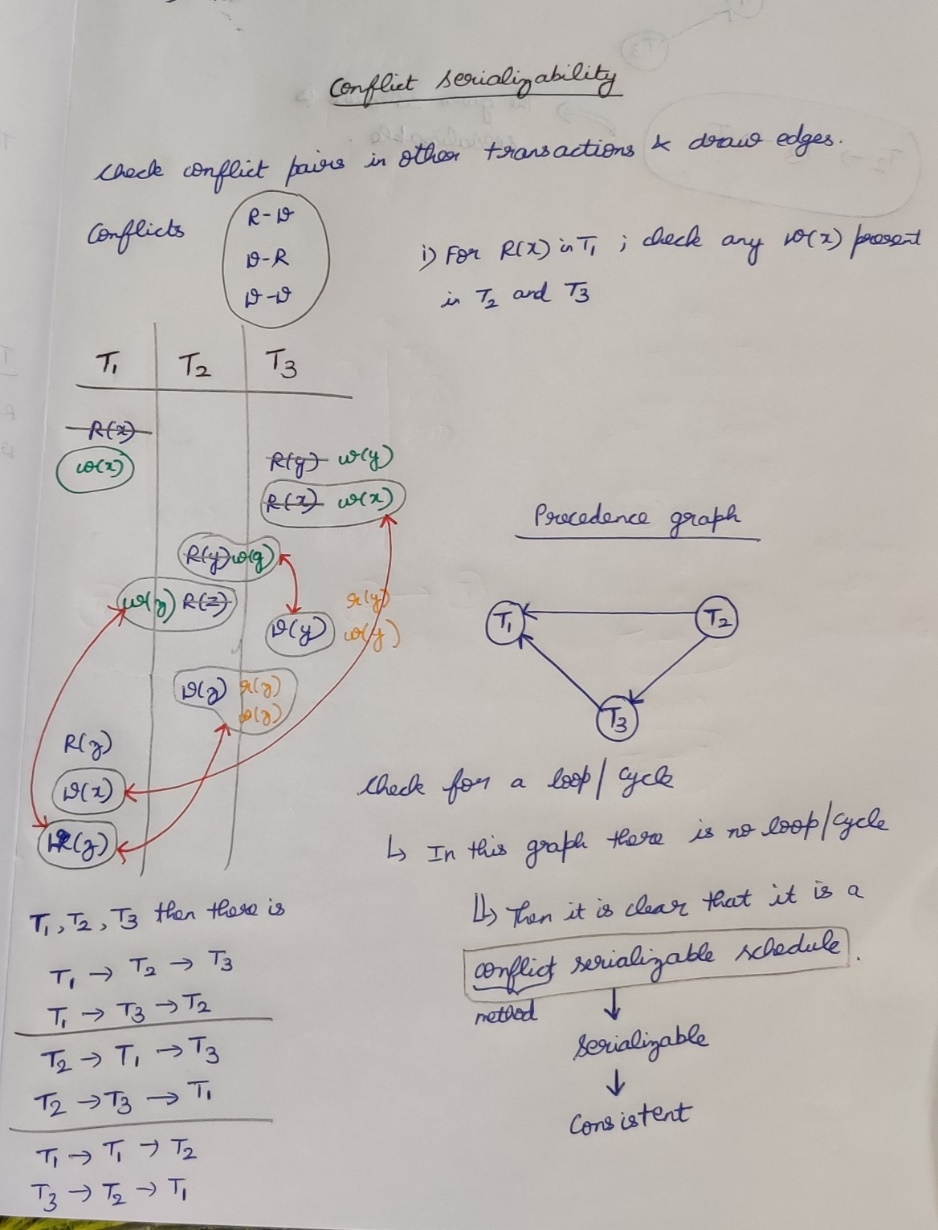 Conflict Serializability
Check conflict pairs in other transactions & draw edges.
Conflicts
R-W
W-R
W-W
i) For R(x) in T1 ; check any w(x) present
in T2 and T3
T1 T2 T3
R(x)
w(x)
R(y) w(y)
R(x) w(x)
R(y) w(y)
w(z) R(z)
W(y)
r(y)
w(y)
W(z) r(z)
w(z)
R(z)
W(x)
W(z)
Precedence graph
T1 T2
T3
Check for a loop/cycle
↳ In this graph there is no loop/cycle
↳ Then it is clear that it is a
conflict serializable schedule.
method
↓
Serializable
↓
Consistent
T1, T2, T3 then there is
T1 → T2 → T3
T1 → T3 → T2
T2 → T1 → T3
T2 → T3 → T1
T1 → T1 → T2
T3 → T2 → T1